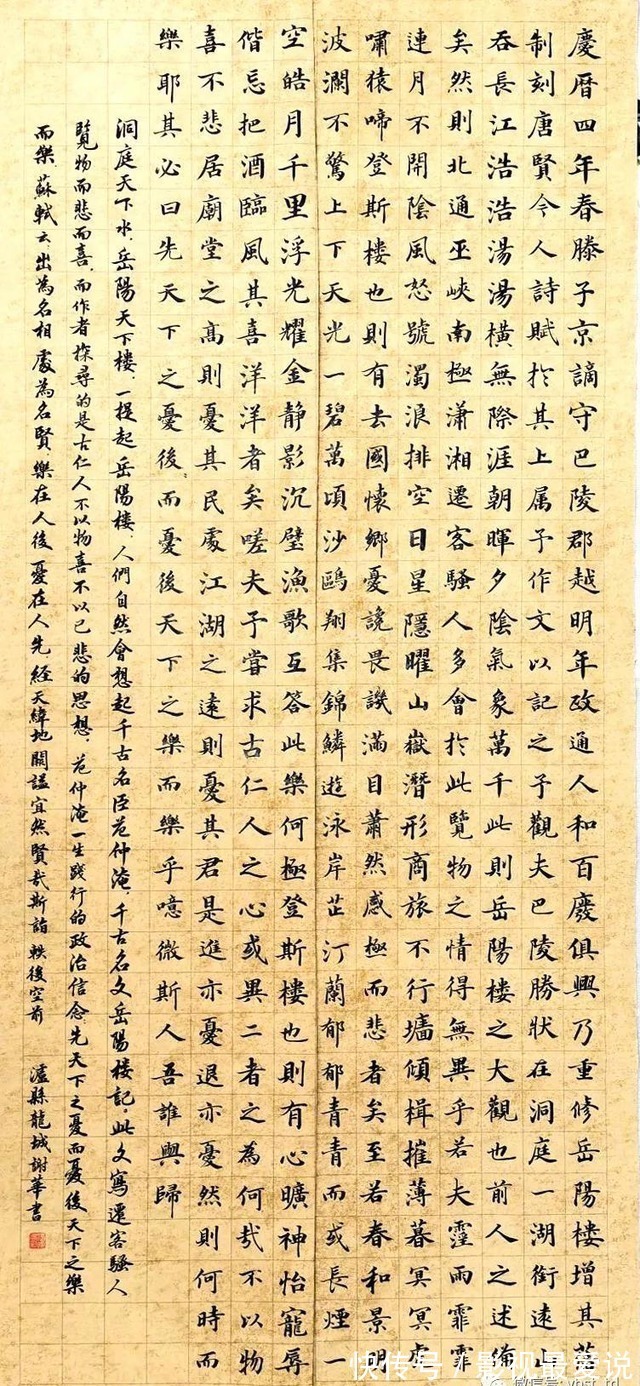 慶曆四年春滕子京謫守巴陵郡越明年政通人和百廢俱興乃重修岳陽楼增其舊
制刻唐賢今人詩賦於其上属予作文以記之予觀夫巴陵勝狀在洞庭一湖銜遠山
吞長江浩浩湯湯橫無際涯朝暉夕陰氣象萬千此則岳陽楼之大觀也前人之述備
矣然則北通巫峽南極瀟湘遷客騷人多會於此覽物之情得無異乎若夫霪雨霏霏
連月不開陰風怒號濁浪排空日星隱曜山嶽潛形商旅不行墻傾楫摧薄暮冥冥虎
嘯猿啼登斯楼也則有去國懷鄉憂讒畏譏滿目蕭然感極而悲者矣至若春和景明
波瀾不驚上下天光一碧萬頃沙鷗翔集錦鱗遊泳岸芷汀蘭郁郁青青而或長煙一
空皓月千里浮光耀金静影沉璧漁歌互答此樂何極登斯楼也則有心曠神怡寵辱
偕忘把酒臨風其喜洋洋者矣嗟夫予嘗求古仁人之心或異二者之為何哉不以物
喜不悲居廟堂之高則憂其民處江湖之遠則憂其君是進亦憂退亦憂然則何時而
樂耶其必曰先天下之憂後而憂後天下之樂而樂乎噫微斯人吾誰與歸
洞庭天下水，岳陽天下楼，一提起岳陽楼，人們自然會想起千古名臣范仲淹，千古名文岳陽楼記，此文寫遷客騷人
覽物而悲而喜，而作者探尋的是古仁人不以物喜不以己悲的思想，范仲淹一生踐行的政治信念先天下之憂而憂後天下之樂
而樂，蘇軾云出為名相處為名賢樂在人後憂在人先經天緯地闕謚宜然賢哉斯詣軼後空前
瀘縣龍城謝華書
快传号 / 影视最爱说
微信号: ybst_rd